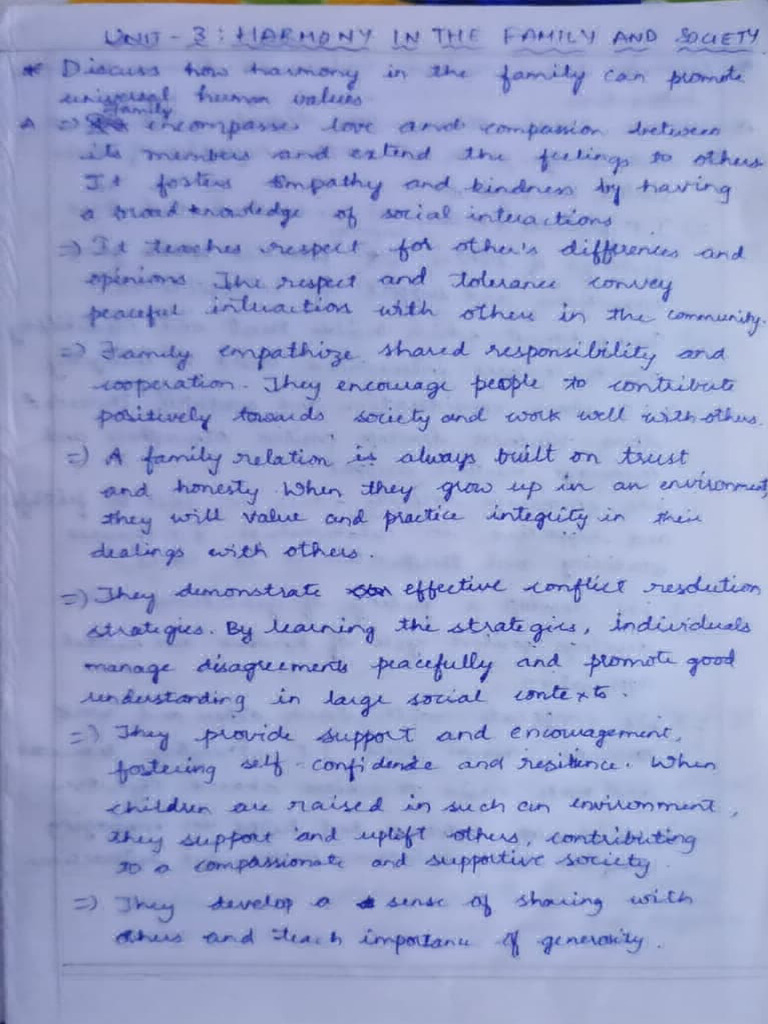 UNIT - 3 : HARMONY IN THE FAMILY AND SOCIETY
* Discuss how harmony in the family can promote
universal human values.
A => Family encompasses love and compassion between
its members and extend the feelings to others.
It fosters empathy and kindness by having
a broad knowledge of social interactions
=> It teaches respect for other's differences and
opinions. The respect and tolerance convey
peaceful interaction with others in the community.
=> Family empathize shared responsibility and
cooperation. They encourage people to contribute
positively towards society and work well with others.
=> A family relation is always built on trust
and honesty. When they grow up in an environment,
they will value and practice integrity in their
dealings with others.
=> They demonstrate effective conflict resolution
strategies. By learning the strategies, individuals
manage disagreements peacefully and promote good
understanding in large social contexts.
=> They provide support and encouragement,
fostering self confidence and resilience. When
children are raised in such an environment,
they support and uplift others, contributing
to a compassionate and supportive society.
=> They develop a sense of sharing with
others and teach importance of generosity.